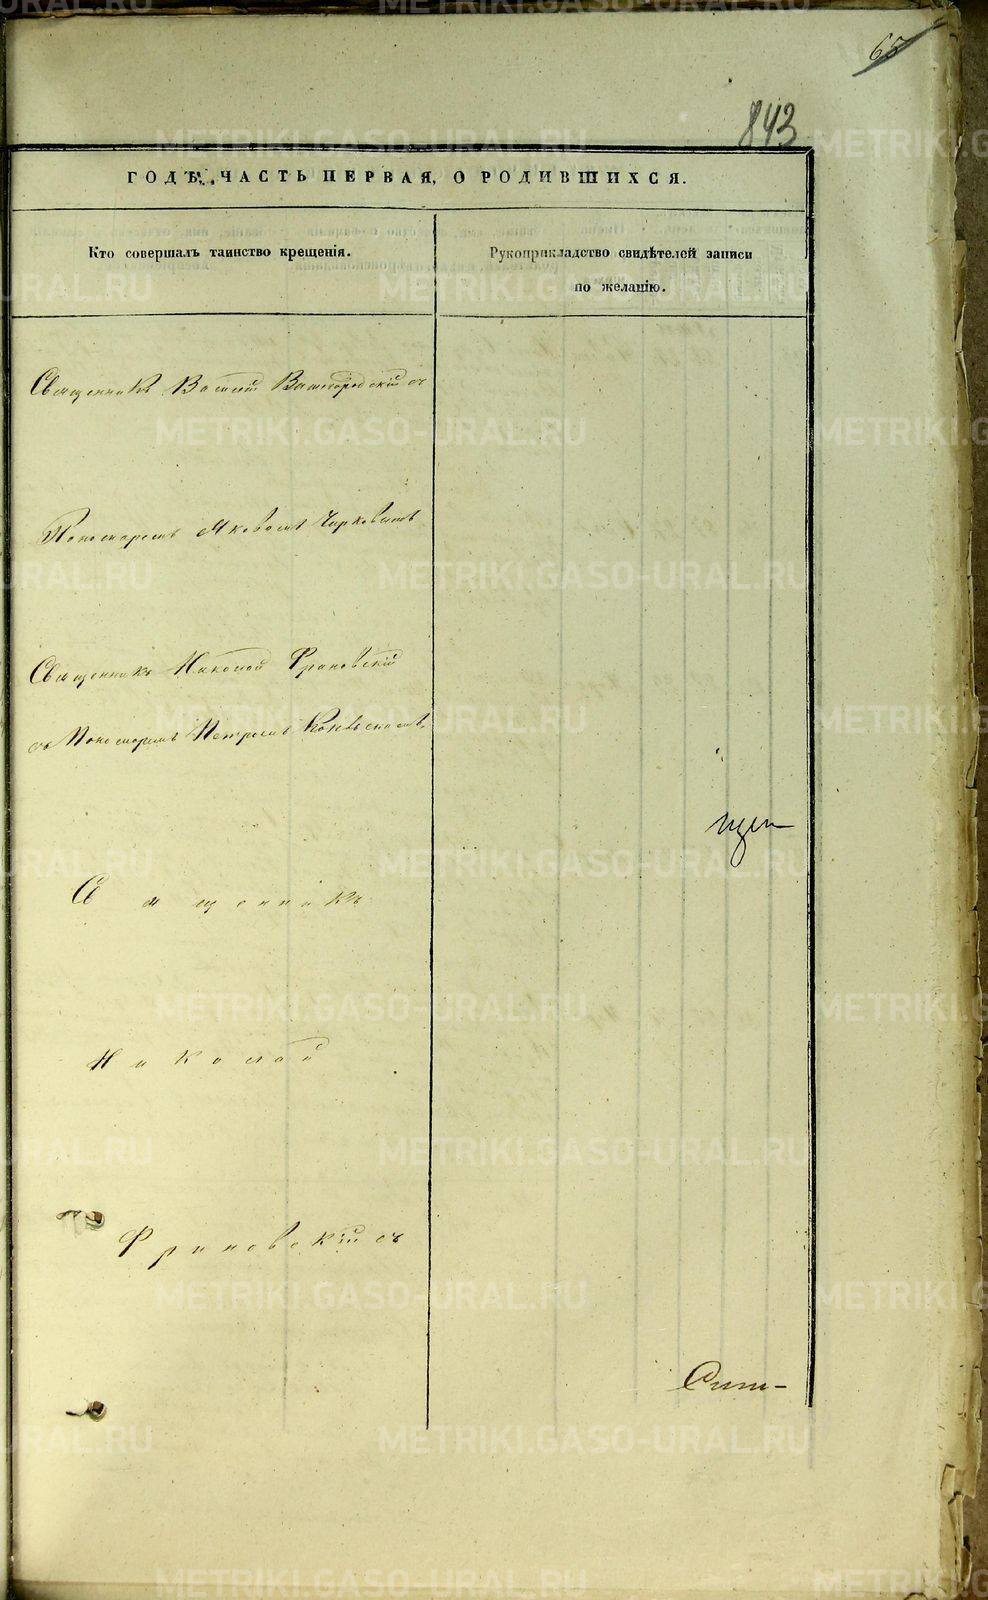 65
843
ГОДѢ, ЧАСТЬ ПЕРВАЯ, О РОДИВШИХСЯ.
Кто совершалъ таинство крещенія.
Рукоприкладство свидѣтелей записи
по желанію.
Священникъ Василій съ
Пономаремъ Яковомъ
Священникъ Николай Франовскій
съ Пономаремъ Петромъ
Священникъ
Николай
Франовскій съ
METRIKI.GASO-URAL.RU